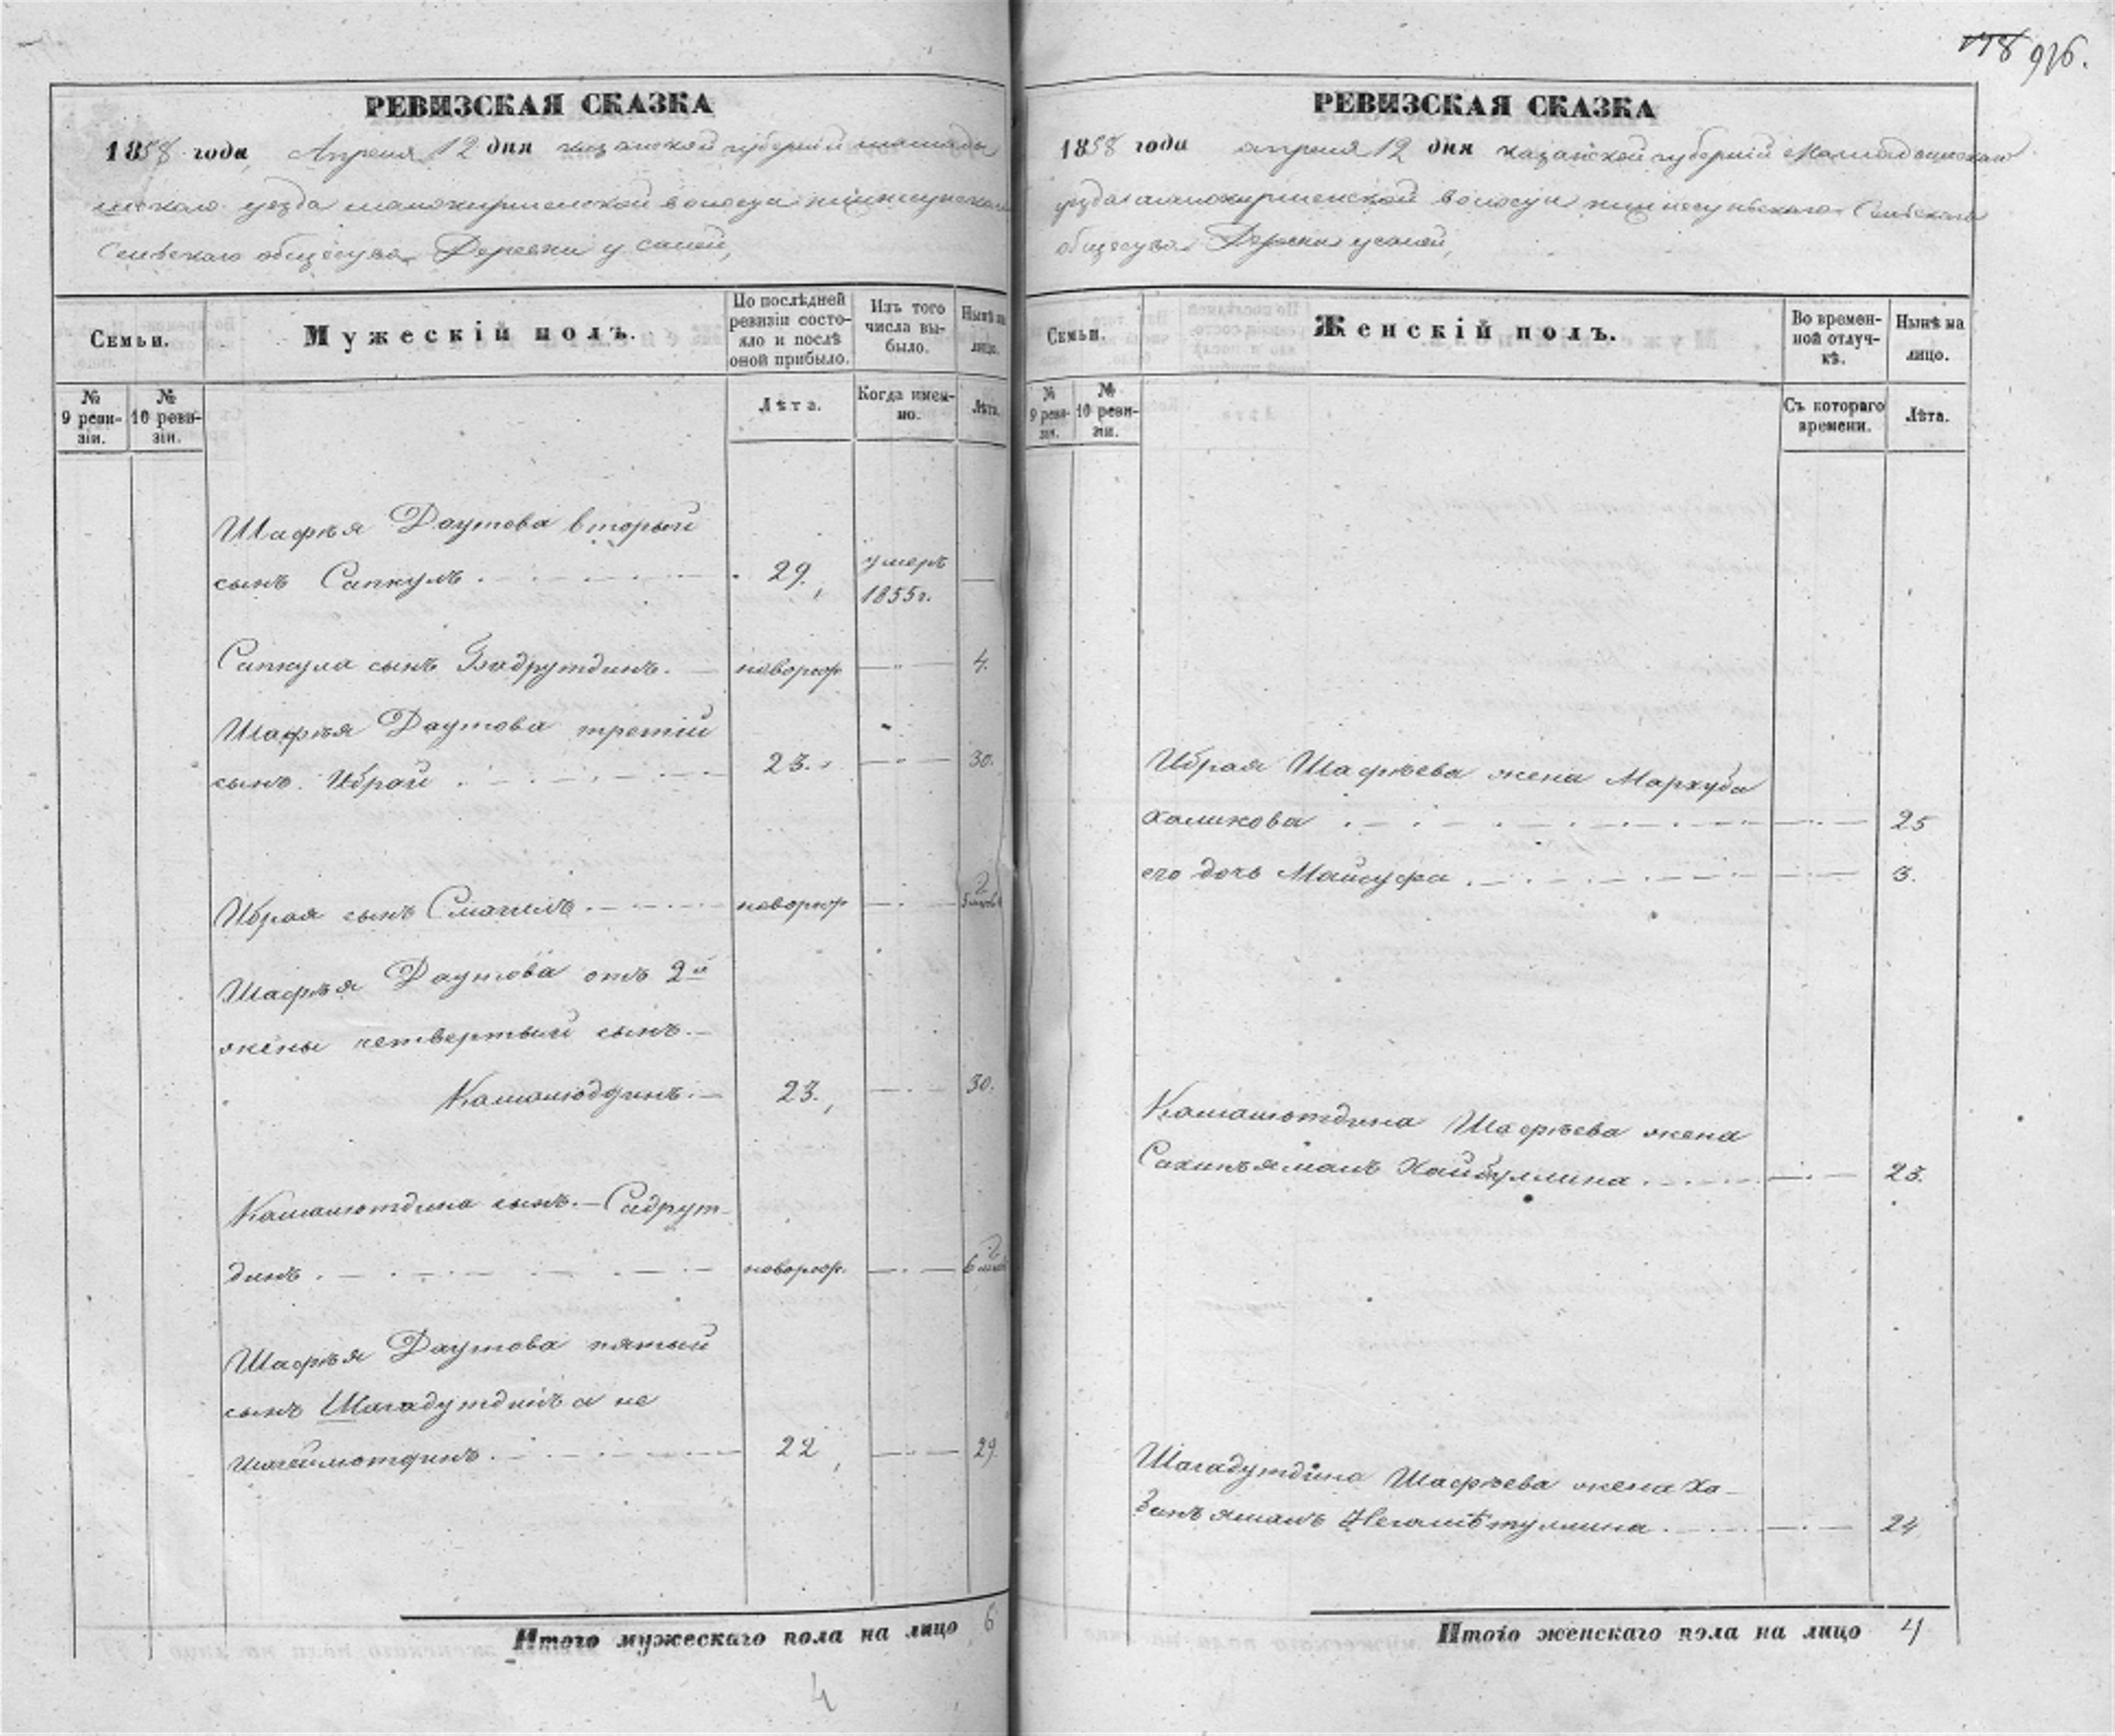 978 976.
РЕВИЗСКАЯ СКАЗКА
1858 года, Апреля 12 дня казанской губернии мамады
шскаго уезда мамокирменской волости
Сельскаго общества Деревни Усалей,
Семьи.
Мужескій полъ.
По послѣдней ревизіи состояло и послѣ оной прибыло.
Изъ того числа выбыло.
Нынѣ на лицо.
№ 9 ревизіи.
№ 10 ревизіи.
Лѣта.
Когда именно.
Лѣта.
Шафѣя Даутова вторый
сынъ Сапкулъ . 29, умеръ 1855г. —
Сапкула сынъ Бадрутдинъ. — новорож 4.
Шафѣя Даутова третій
сынъ Ибрай . 23. 30.
Ибрая сынъ Смагилъ . новорож 2
Шафѣя Даутова отъ 2й
жены четвертый сынъ.—
Камалюддинъ.— 23, 30.
Камалютдина сынъ.— Садрут-
динъ . новорож. 2
Шафѣя Даутова пятый
сынъ Шагадутдинъ а не
22, 29.
Итого мужескаго пола на лицо 6
4
РЕВИЗСКАЯ СКАЗКА
1858 года апреля 12 дня казанской губерніи Мамадышскаго
уезда мамокирменской волости Сельскаго
общества Деревни усалей,
Семьи.
Женскій полъ.
Во временной отлучкѣ.
Нынѣ на лицо.
№ 9 ревизіи.
№ 10 ревизіи.
Съ котораго времени.
Лѣта.
Ибрая Шафѣева жена Мархуба
Халикова . 25
его дочь Майсуфа . 3.
Камалютдина Шафѣева жена
Сахипъямалъ Хайбуллина . 23.
Шагадутдина Шафѣева жена Ха-
Зипъямалъ Негамѣтуллина . 24
Итого женскаго пола на лицо 4